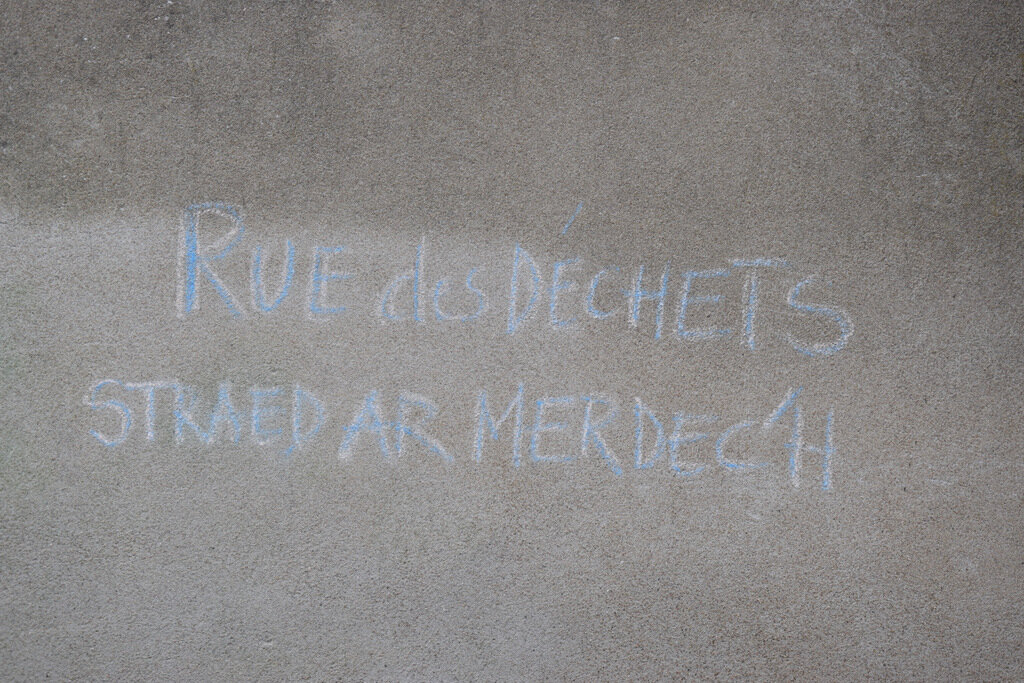 RUE des DÉCHETS
STRAED AR MERDEC'H